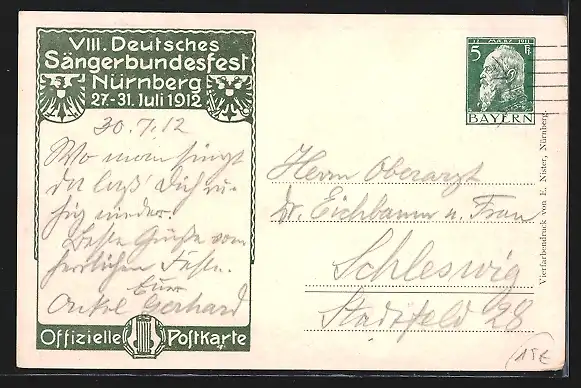 VIII. Deutsches
Sängerbundesfest
Nürnberg
27.-31. Juli 1912
30.7.12
Wo man singt
da laß' Dich ru-
hig nieder.
Beste Grüße vom
herrlichen Feste.
Euer
Onkel Gerhard
Offizielle Postkarte
12. MÄRZ 1911
5 Pf
BAYERN
Herrn Oberarzt
Dr. Eichbaum u. Frau
Schleswig
Stadtfeld 28
Vierfarbendruck von E. Nister, Nürnberg.
15€